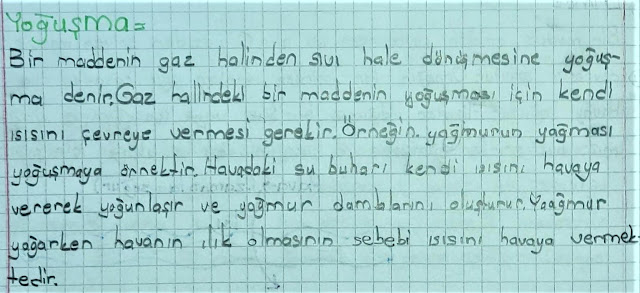 Yoğuşma=
Bir maddenin gaz halinden sıvı hale dönüşmesine yoğuş-
ma denir. Gaz halindeki bir maddenin yoğuşması için kendi
ısısını çevreye vermesi gerekir. Örneğin. yağmurun yağması
yoğuşmaya örnektir. Havadaki su buharı kendi ısısını havaya
vererek yoğunlaşır ve yağmur damblarını oluşturur. Yaağmur
yağarken havanın ılık olmasının sebebi ısısını havaya vermek-
tedir.